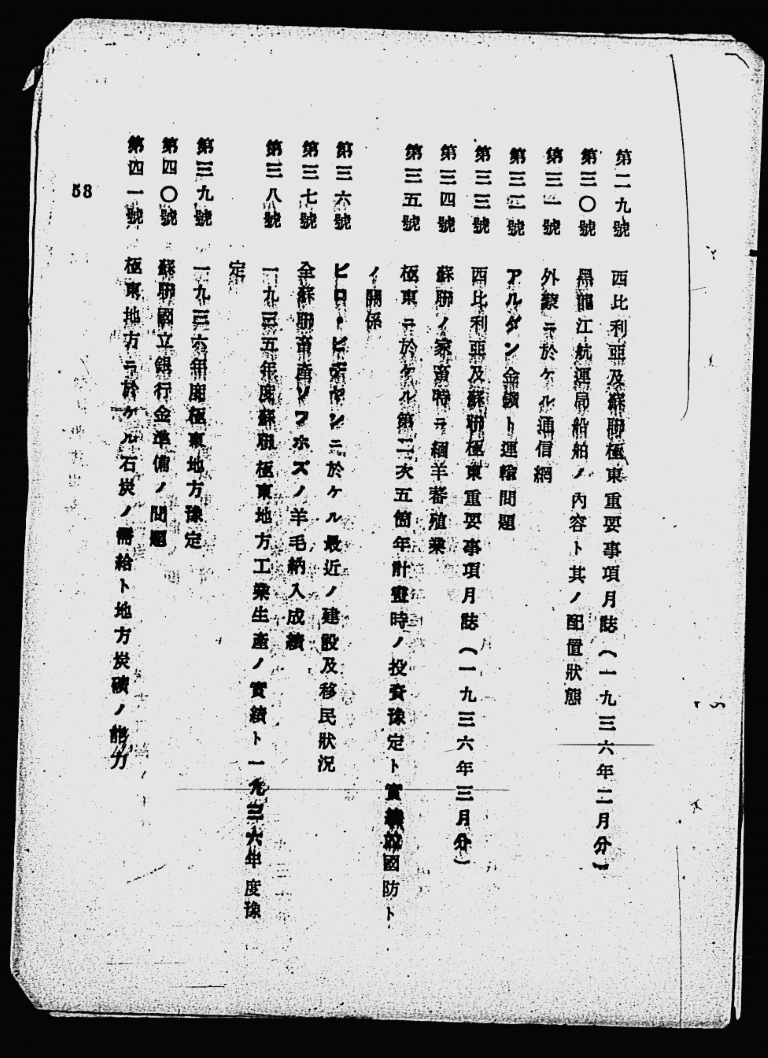 第二九號 西比利亞及蘇聯極東重要事項月誌(一九三六年二月分)
第三〇號 黑龍江航運局船舶ノ內容ト其ノ配置狀態
第三一號 外蒙ニ於ケル通信網
第三二號 アルダン金鑛ト運輸問題
第三三號 西比利亞及蘇聯極東重要事項月誌(一九三六年三月分)
第三四號 蘇聯ノ家畜特ニ緬羊蕃殖業
第三五號 極東ニ於ケル第二次五箇年計畫時ノ投資豫定ト實績竝國防ト
ノ關係
第三六號 ビロ・ビヂヤンニ於ケル最近ノ建設及移民狀況
第三七號 全蘇聯畜產ソフホズノ羊毛納入成績
第三八號 一九三五年度蘇聯極東地方工業生產ノ實績ト一九三六年度豫
定
第三九號 一九三六年度極東地方豫定
第四〇號 蘇聯國立銀行金準備ノ問題
第四一號 極東地方ニ於ケル石炭ノ需給ト地方炭礦ノ能力
58